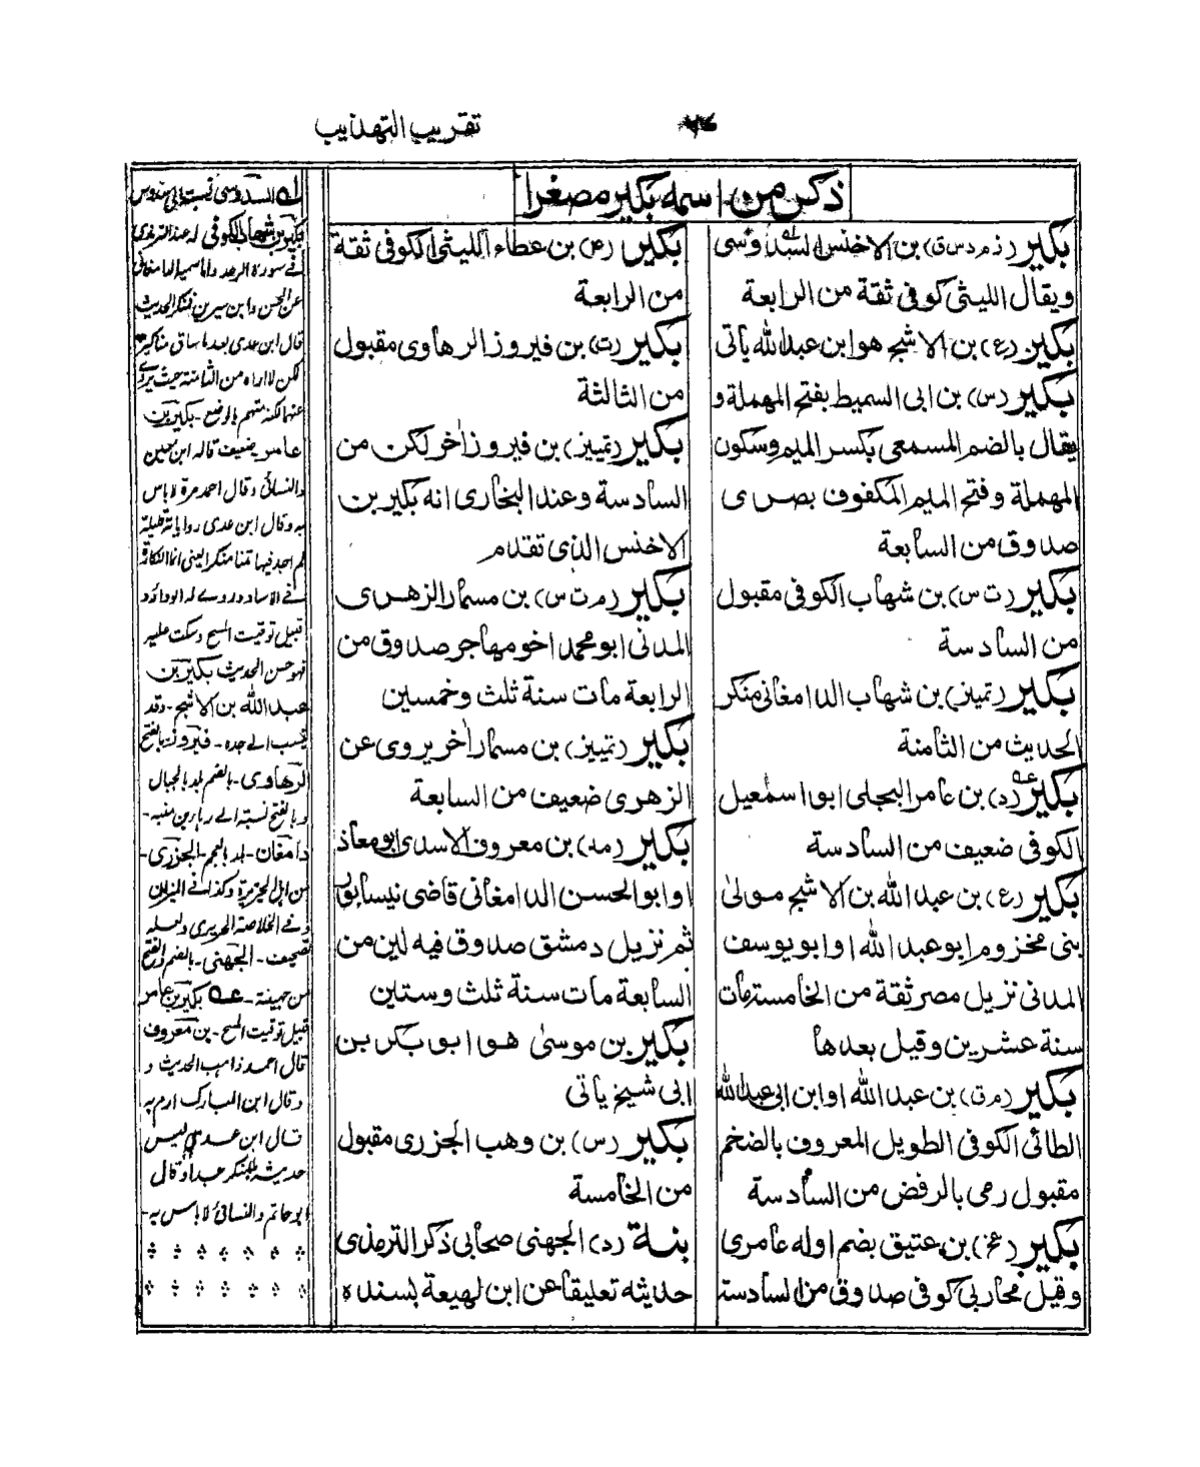 تقريب التهذيب
ذكر من اسمه بكير مصغرا
بكير (ز م د س ق) بن الاخنس السدوسى
ويقال الليثى كوفى ثقة من الرابعة
بكير (ع) بن الاشج هو ابن عبد الله ياتى
بكير (س) بن ابى السميط بفتح المهملة و
يقال بالضم المسمعى بكسر الميم وسكون
المهملة وفتح الميم المكفوف بصرى
صدوق من السابعة
بكير (ت س) بن شهاب الكوفى مقبول
من السادسة
بكير (تميز) بن شهاب الدامغانى منكر
الحديث من الثامنة
بكير (د) بن عامر البجلى ابو اسمٰعيل
الكوفى ضعيف من السادسة
بكير (ع) بن عبد الله بن الاشج مولىٰ
بنى مخزوم ابو عبد الله او ابو يوسف
المدنى نزيل مصر ثقة من الخامسة مات
سنة عشرين وقيل بعدها
بكير (م ق) بن عبد الله او ابن ابى عبد الله
الطائى الكوفى الطويل المعروف بالضخم
مقبول رمى بالرفض من السادسة
بكير (عخ) بن عتيق بضم اوله عامرى
وقيل محاربى كوفى صدوق من السادسة
بكير (ع) بن عطاء الليثى الكوفى ثقة
من الرابعة
بكير (ت) بن فيروز الرهاوى مقبول
من الثالثة
بكير (تميز) بن فيروز اٰخر لكن من
السادسة وعند البخارى انه بكير بن
الاخنس الذى تقدم
بكير (م ت س) بن مسمار الزهرى
المدنى ابو محمد اخو مهاجر صدوق من
الرابعة مات سنة ثلث وخمسين
بكير (تميز) بن مسمار اٰخر يروى عن
الزهرى ضعيف من السابعة
بكير (مد) بن معروف الاسدى ابو معاذ
او ابو الحسن الدامغانى قاضى نيسابور
ثم نزيل دمشق صدوق فيه لين من
السابعة مات سنة ثلث وستين
بكير بن موسىٰ هو ابو بكر بن
ابى شيخ ياتى
بكير (س) بن وهب الجزرى مقبول
من الخامسة
بنة (د) الجهنى صحابى ذكر الترمذى
حديثه تعليقا عن ابن لهيعة بسنده
السدوسى نسبة الى سدوس
بكير بن شهاب الكوفى له عند الترمذى
فے سورة الرعد واما سميه الدامغانى
عن الحسن وابن سيرين فمنكر الحديث
قال ابن عدى بعد ما ساق مناكير
لكن لا اراه من الثامنة حيث يروے
عنهما لكنه متهم بالوضع - بكير بن
عامر ضعيف قاله ابن معين
والنسائى وقال احمد مرة لا باس
به وقال ابن عدى رواياته قليلة
لم اجد فيها متنا منكرا يعنى انما النكارة
فے الاسناد وروے له ابو داؤد
قبيل توقيت المسح وسكت عليه
فهو حسن الحديث بكير بن
عبد الله بن الاشج - وقد
ينسب الے جده - فيروز بالفتح
الرهاوى - بالضم بلد بالجبال
وبالفتح نسبة الے رهاء بن منبه -
دامغان - بلد بالعجم - الجزرى -
من اهل الجزيرة وكذا فے الميزان
وفے الخلاصة الحريرى ولعله
تصحيف - الجهنى - بالضم والفتح
من جهينة - بكير بن عامر
قبيل توقيت المسح - بن معروف
قال احمد ذاهب الحديث و
وقال ابن المبارك ارم به
قال ابن عدى ليس
حديثه بالمنكر جدا وقال
ابو حاتم والنسائى لا باس به -